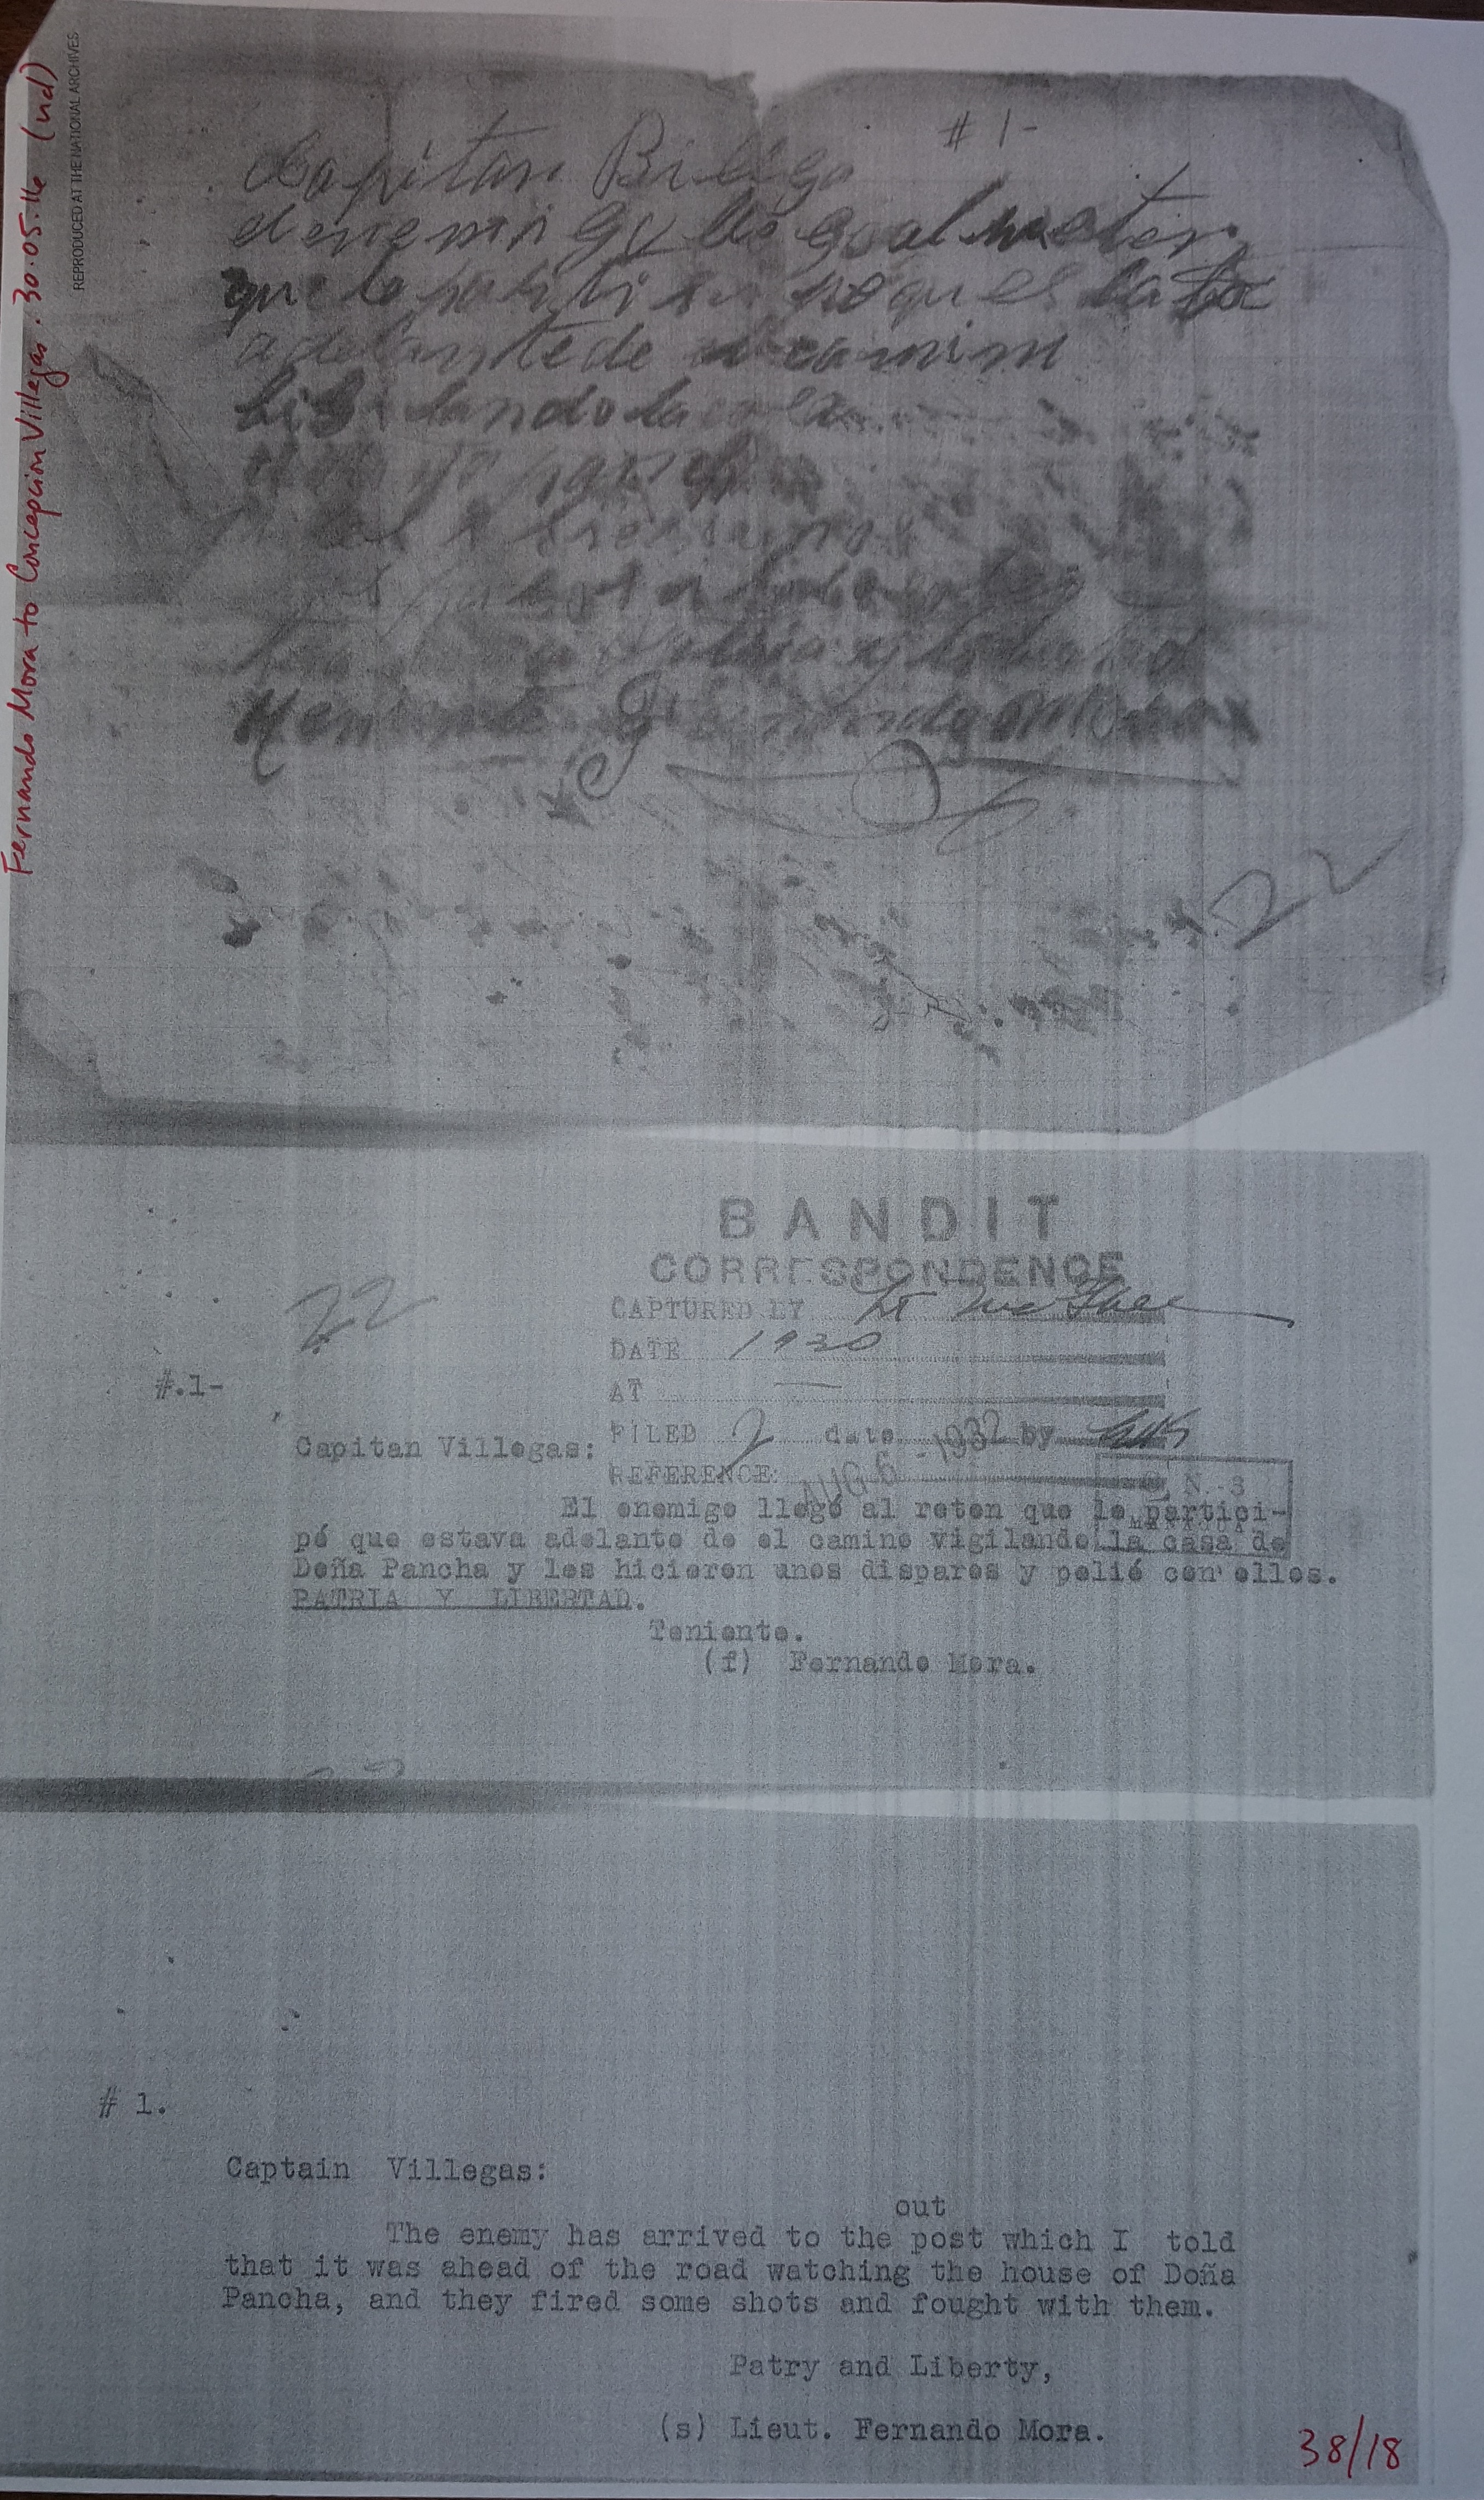 Fernando Mora to Concepcion Villegas. 30.05.16 (nd)
REPRODUCED AT THE NATIONAL ARCHIVES
# 1-
Capitan Billega
el enemigo llego al reten
que le partisi
adelante de el camin
bigilando la
Patria y liberta
Fernando Mora
22
BANDIT
CORRESPONDENCE
CAPTURED BY Lt McGhee
DATE 1930
AT —
FILED 2 date AUG 6 - 1932 by
REFERENCE:
N.-3
MANAGUA
22
#.1-
Capitan Villegas:
El enemigo llegó al reten que le partici-
pé que estava adelante de el camino vigilando la casa de
Doña Pancha y les hicieron unos disparos y pelié con ellos.
PATRIA Y LIBERTAD.
Teniente.
(f) Fernando Mora.
# 1.
Captain Villegas:
out
The enemy has arrived to the post which I told
that it was ahead of the road watching the house of Doña
Pancha, and they fired some shots and fought with them.
Patry and Liberty,
(s) Lieut. Fernando Mora.
38/18